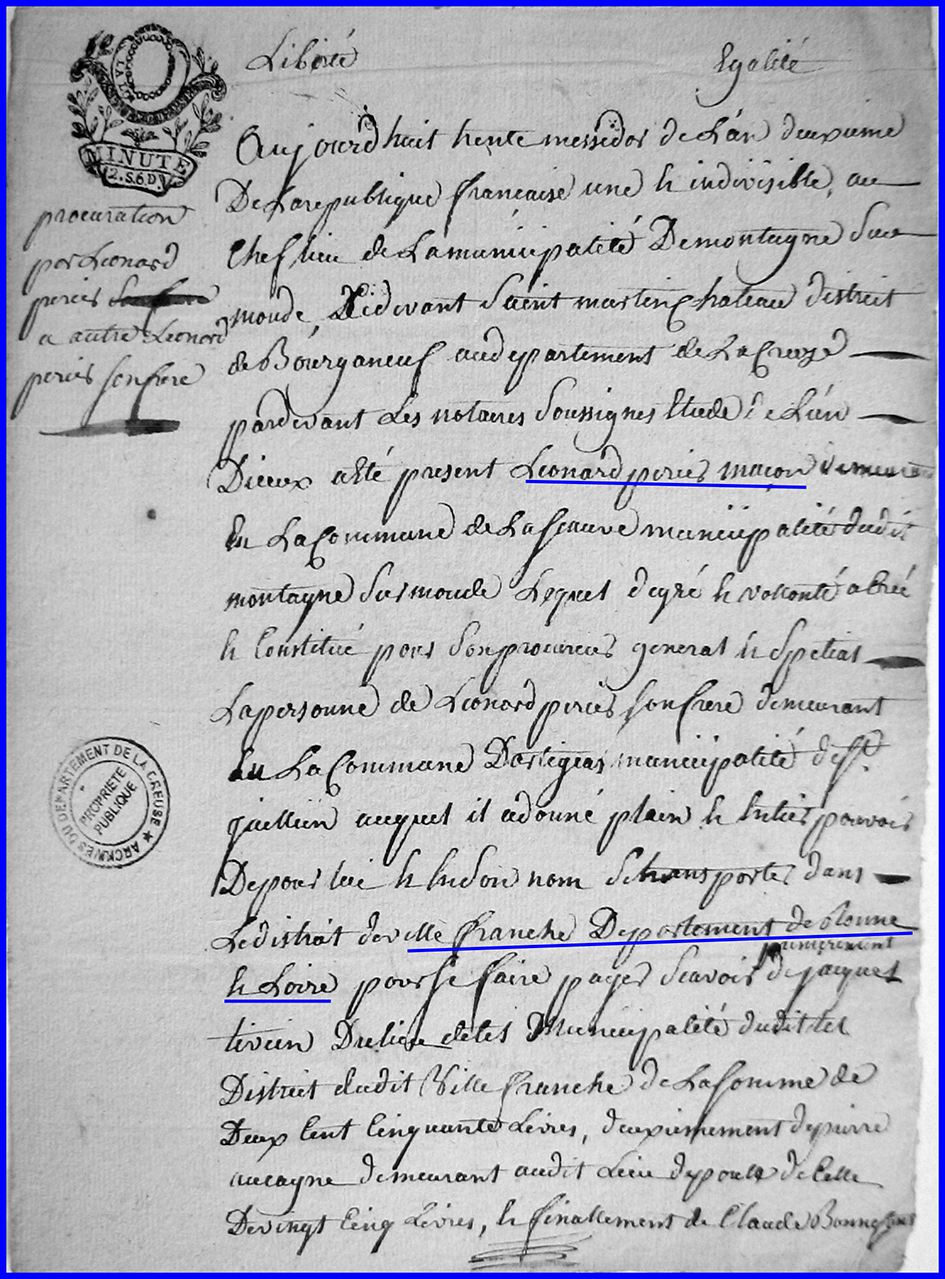 Liberté Egalité
MINUTE
2.S.6D.
procuration
par Leonard
periés
a autre Leonard
periés son frere
Aujourd'huit trente messidor de L'an deuxieme
De Larepublique francaise une et indivisible, au
Chef lieu de Lamunicipalité Demontagne Sur
maude, Cidevant Saint martin Chateau district
de Bourganeuf audepartement de La Creuze
pardevant Les notaires Soussignes
Dieux aété present Leonard periés maçon demeurant
En La Commune de La municipalité dudit
montagne Sur maude Lequel degré et vollonté acréé
et Constitué pour Son procureur general et Spetial
Lapersonne de Leonard periés Son frere demeurant
En La Commune Dartigeas municipalité de St.
jullien auquel il adonné plain et Entier pouvoir
Depour lui et En Son nom Se transporter dans
Le district deville franche Departement de Ronne
et Loire pour Se faire payer Scavoir premierement de jacques
Du lieu de Municipalité dudit
District dudit Ville franche de La Somme de
Deux Cent Cinquante Livres, deuxiemement depierre
aucagne demeurant audit Lieu de Celle
De vingt Cinq Livres, et finallement de Claude
ARCHIVES DU DEPARTEMENT DE LA CREUSE
PROPRIETE
PUBLIQUE